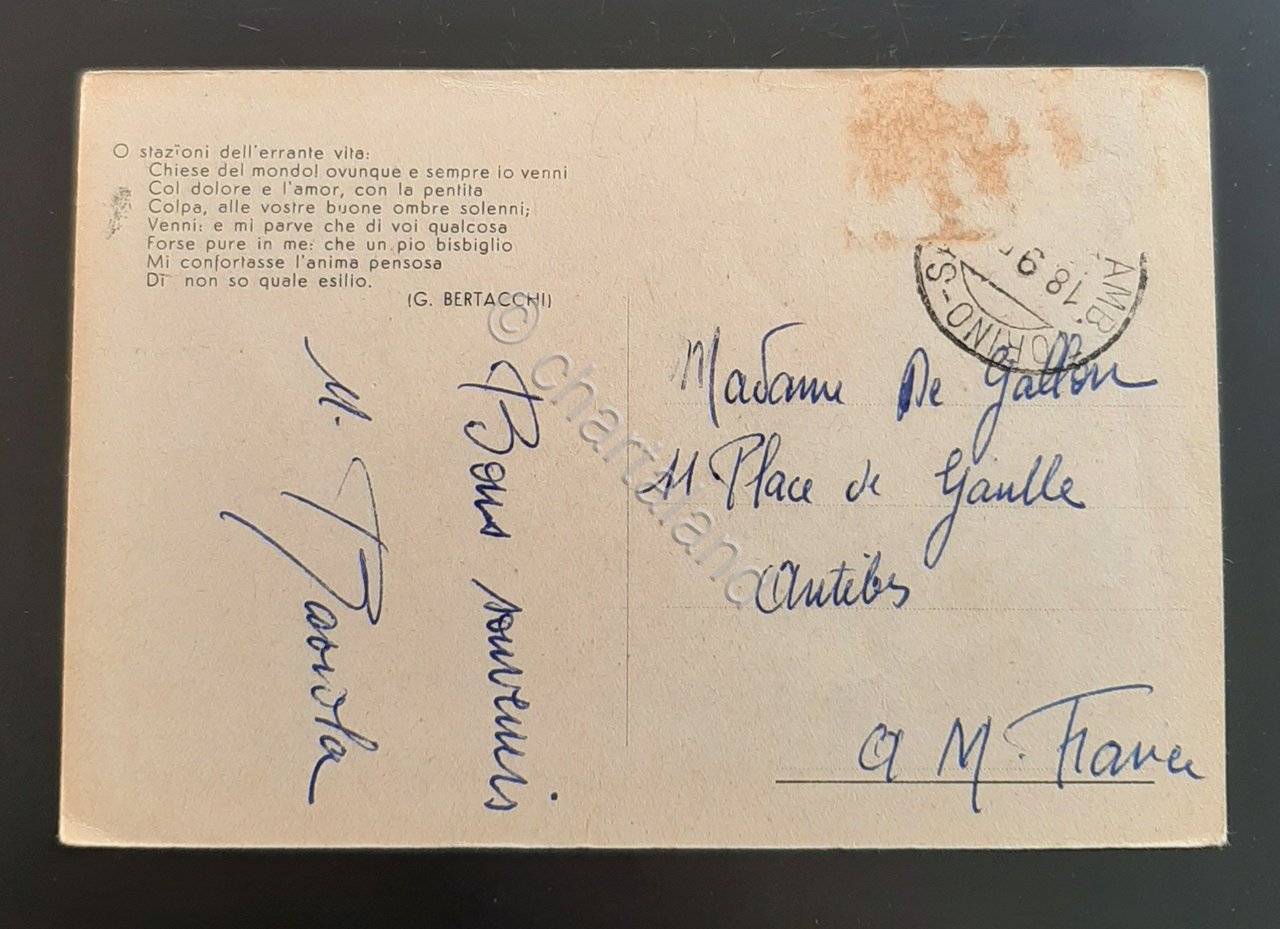 O stazïoni dell'errante vita:
Chiese del mondo! ovunque e sempre io venni
Col dolore e l'amor, con la pentita
Colpa, alle vostre buone ombre solenni;
Venni: e mi parve che di voi qualcosa
Forse pure in me: che un pio bisbiglio
Mi confortasse l'anima pensosa
Di non so quale esilio.
(G. BERTACCHI)
Bons souvenirs
M.
Madame De Gallon
11 Place de Gaulle
Antibes
A M. France
AMB. TORINO-S
18 9
© chartaland